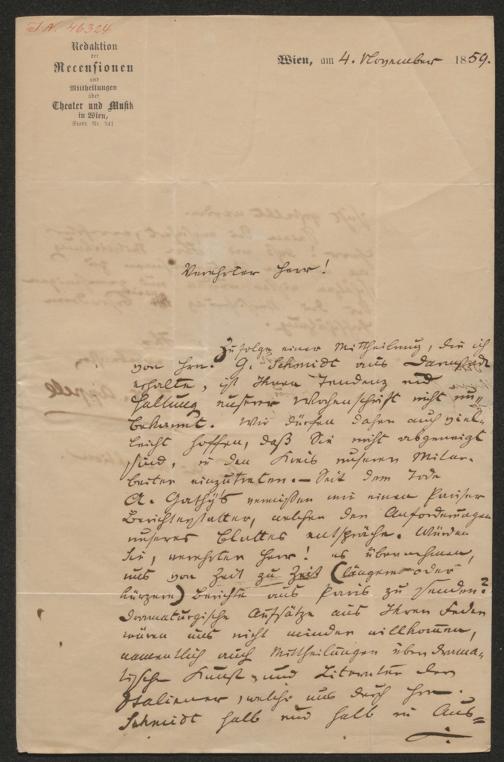 I.N. 46324
Redaktion
der
Recensionen
und
Mittheilungen
über
Theater und Musik
in Wien,
Stadt Nr. 541
Wien, am 4. November 1859.
Verehrter Herr!
Zufolge einer Mittheilung, die ich
von Hrn. G. Schmidt aus Darmstadt
erhalte, ist Ihnen Tendenz und
Haltung unserer Wochenschrift nicht un-
bekannt. Wir dürfen daher auch viel-
leicht hoffen, daß Sie nicht abgeneigt
sind, in den Kreis unserer Mitar-
beiter einzutreten. – Seit dem Tode
A. Gathy's vermissen wir einen Pariser
Berichterstatter, welcher den Anforderungen
unseres Blattes entspräche. Würden
Sie, verehrter Herr! es übernehmen,
uns von Zeit zu Zeit (längere oder
kürzere) Berichte aus Paris zu senden?
Dramaturgische Aufsätze aus Ihrer Feder
wären uns nicht minder willkommen,
namentlich auch Mittheilungen über drama-
tische Kunst und Literatur der
Italiener, welche uns durch Hrn.
Schmidt halb und halb in Aus-